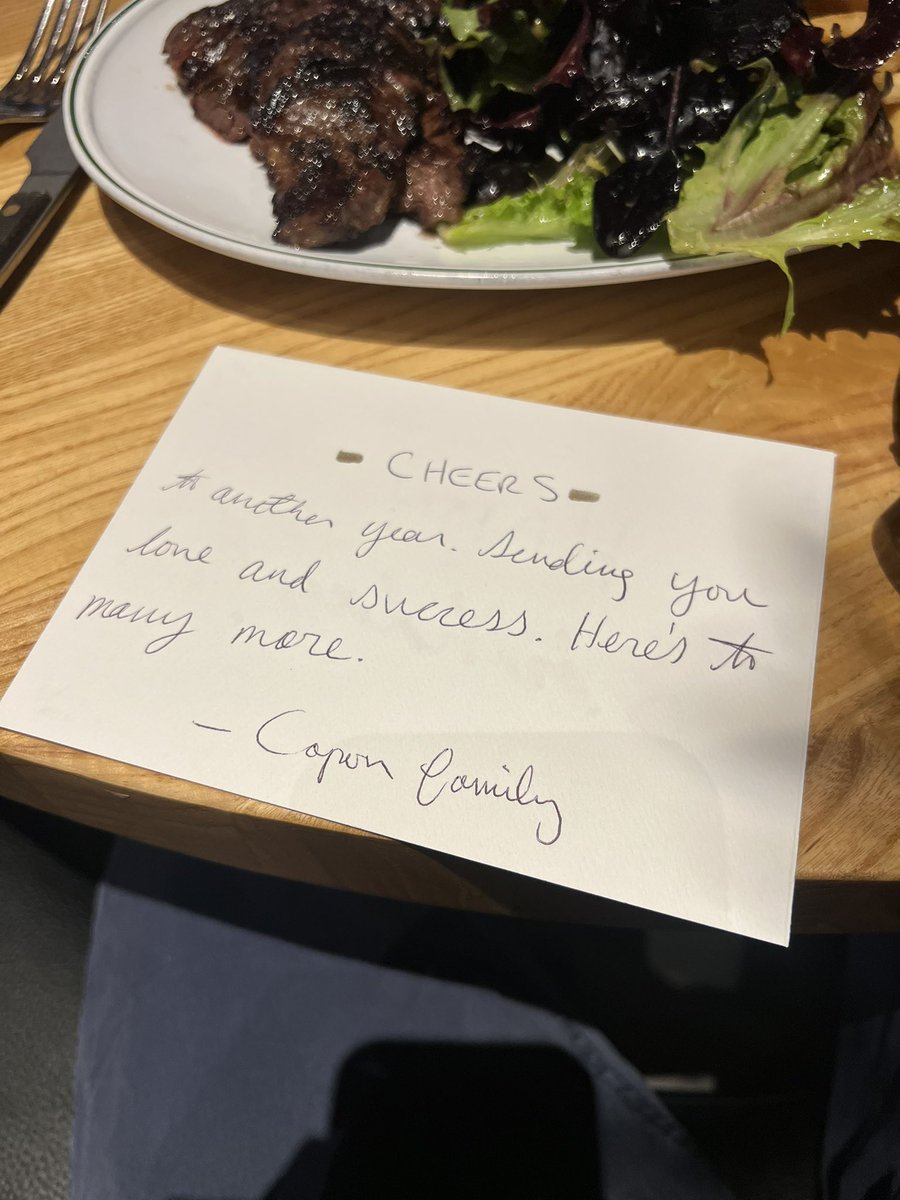 - CHEERS -
to another year. Sending you
love and success. Here's to
many more.
- Capon Family